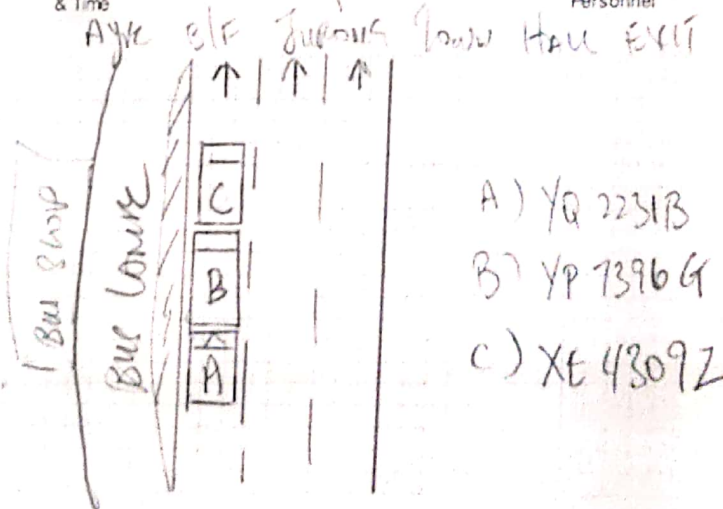 & Time
Personnel
Aye B/F Jurong Town Hall EXIT
Bus Stop
Bus Lane
C
B
A
A) YQ 2231B
B) YP 7396G
C) XE 4309Z